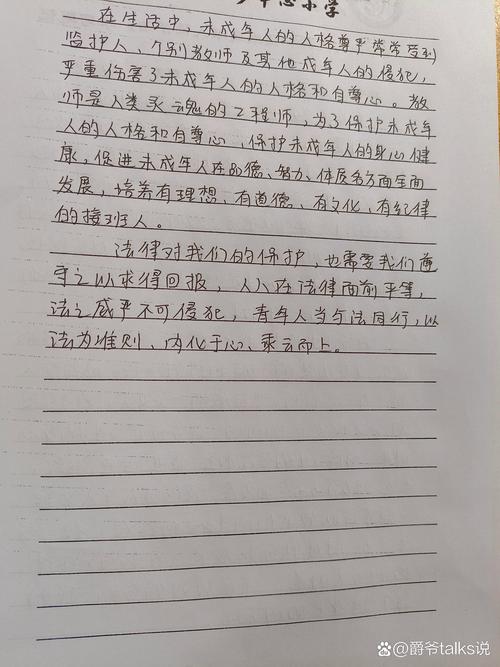 小学
在生活中,未成年人的人格尊严常常受到
监护人、个别教师及其他成年人的侵犯,
严重伤害了未成年人的人格和自尊心。教
师是人类灵魂的工程师,为了保护未成年
人的人格和自尊心,保护未成年人的身心健
康,促进未成年人在品德、智力、体质各方面全面
发展,培养有理想、有道德、有文化、有纪律
的接班人。
法律对我们的保护,也需要我们遵
守之以求得回报,人人在法律面前平等,
法之威严不可侵犯,青年人当与法同行,以
法为准则、内化于心、乘云而上。
@爵爷talks说